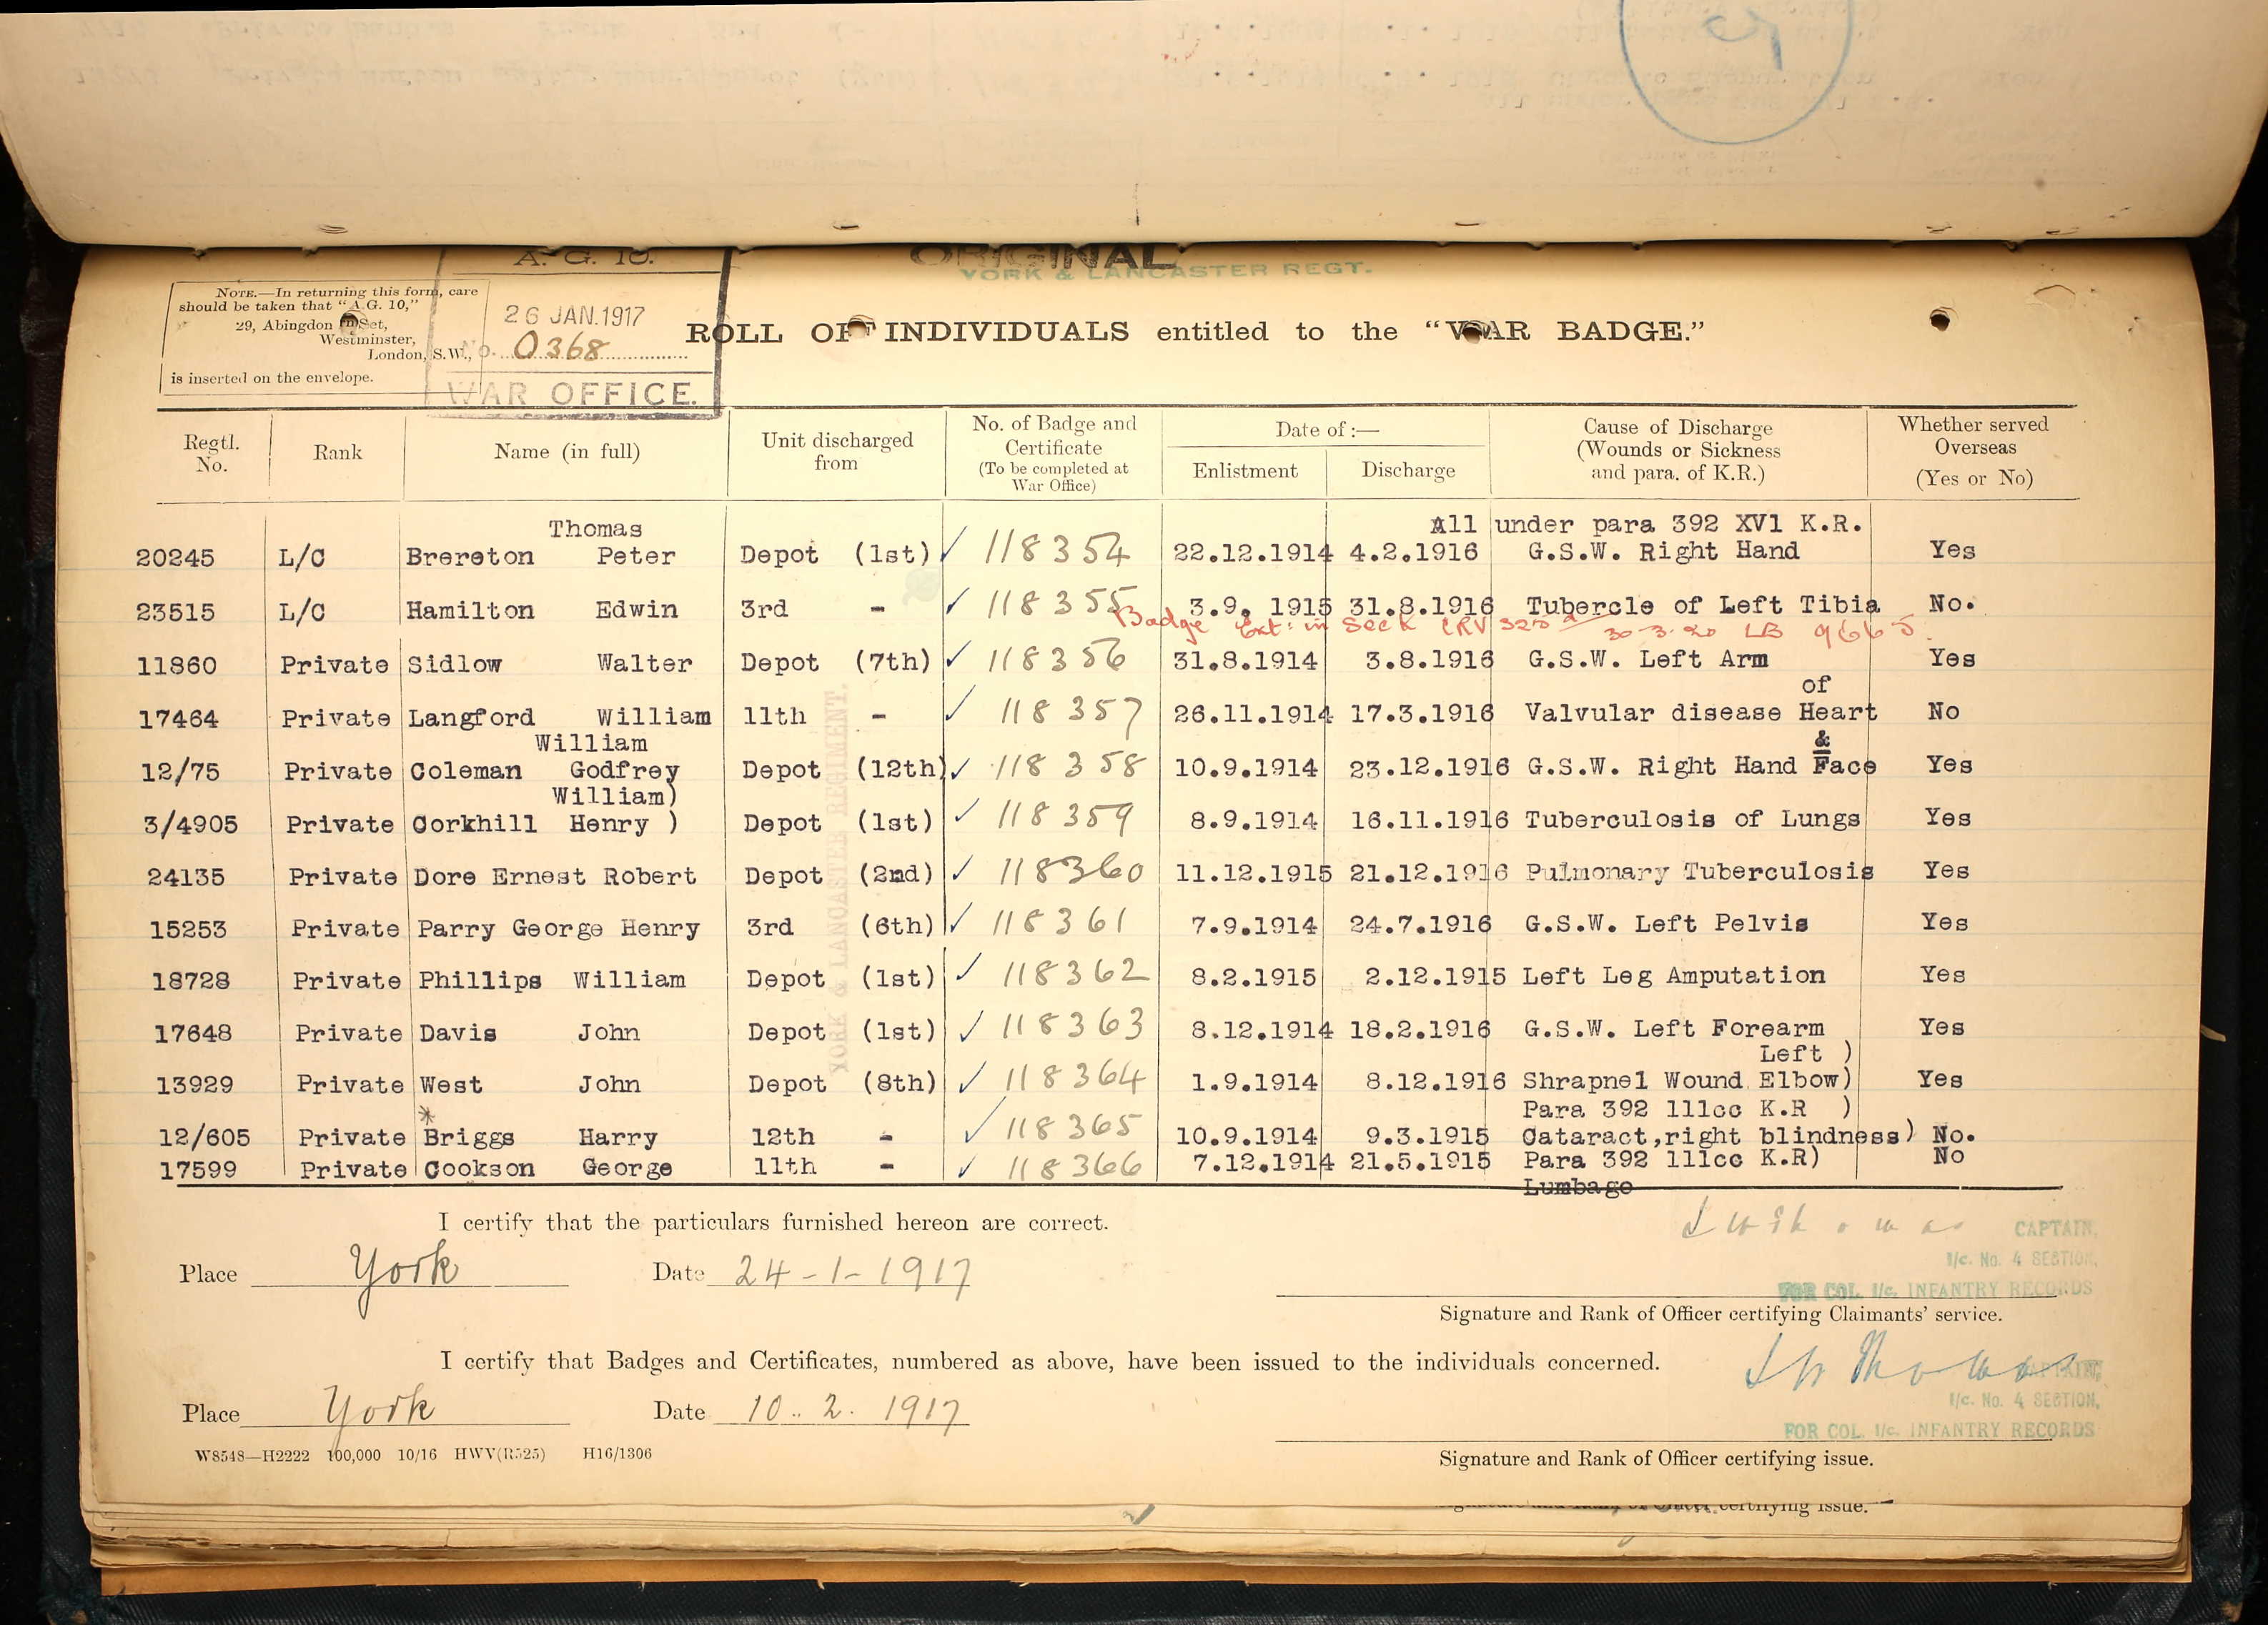 A. G. 10.
ORIGINAL
YORK & LANCASTER REGT.
NOTE.—In returning this form, care
should be taken that "A.G. 10,"
29, Abingdon
Westminster,
London, S.W.,
is inserted on the envelope.
26 JAN.1917
No. 0368
WAR OFFICE.
ROLL OF INDIVIDUALS entitled to the "WAR BADGE."
Regtl. No. Rank Name (in full) Unit discharged from No. of Badge and Certificate (To be completed at War Office) Date of :— Enlistment Discharge Cause of Discharge (Wounds or Sickness and para. of K.R.) Whether served Overseas (Yes or No)
Thomas All under para 392 XVl K.R.
20245 L/C Brereton Peter Depot (1st) ✓ 118354 22.12.1914 4.2.1916 G.S.W. Right Hand Yes
23515 L/C Hamilton Edwin 3rd - ✓ 118355 3.9. 1915 31.8.1916 Tubercle of Left Tibia No.
Badge Ext: in 30-3-20 LB 9665
11860 Private Sidlow Walter Depot (7th) ✓ 118356 31.8.1914 3.8.1916 G.S.W. Left Arm Yes
of
17464 Private Langford William 11th - ✓ 118357 26.11.1914 17.3.1916 Valvular disease Heart No
William &
12/75 Private Coleman Godfrey Depot (12th) ✓ 118358 10.9.1914 23.12.1916 G.S.W. Right Hand Face Yes
William)
3/4905 Private Corkhill Henry ) Depot (1st) ✓ 118359 8.9.1914 16.11.1916 Tuberculosis of Lungs Yes
24135 Private Dore Ernest Robert Depot (2nd) ✓ 118360 11.12.1915 21.12.1916 Pulmonary Tuberculosis Yes
15253 Private Parry George Henry 3rd (6th) ✓ 118361 7.9.1914 24.7.1916 G.S.W. Left Pelvis Yes
18728 Private Phillips William Depot (1st) ✓ 118362 8.2.1915 2.12.1915 Left Leg Amputation Yes
17648 Private Davis John Depot (1st) ✓ 118363 8.12.1914 18.2.1916 G.S.W. Left Forearm Yes
Left )
13929 Private West John Depot (8th) ✓ 118364 1.9.1914 8.12.1916 Shrapnel Wound Elbow) Yes
* Para 392 111cc K.R )
12/605 Private Briggs Harry 12th - ✓ 118365 10.9.1914 9.3.1915 Cataract,right blindness) No.
17599 Private Cookson George 11th - ✓ 118366 7.12.1914 21.5.1915 Para 392 111cc K.R) No
Lumbago
YORK & LANCASTER REGIMENT.
I certify that the particulars furnished hereon are correct.
CAPTAIN,
I/c. No. 4 SECTION,
FOR COL. I/c. INFANTRY RECORDS
Place York Date 24-1-1917
Signature and Rank of Officer certifying Claimants' service.
I certify that Badges and Certificates, numbered as above, have been issued to the individuals concerned.
Thomas
CAPTAIN,
I/c. No. 4 SECTION,
FOR COL. I/c. INFANTRY RECORDS
Place York Date 10. 2. 1917
W8548—H2222 100,000 10/16 HWV(R525) H16/1306
Signature and Rank of Officer certifying issue.
certifying issue.